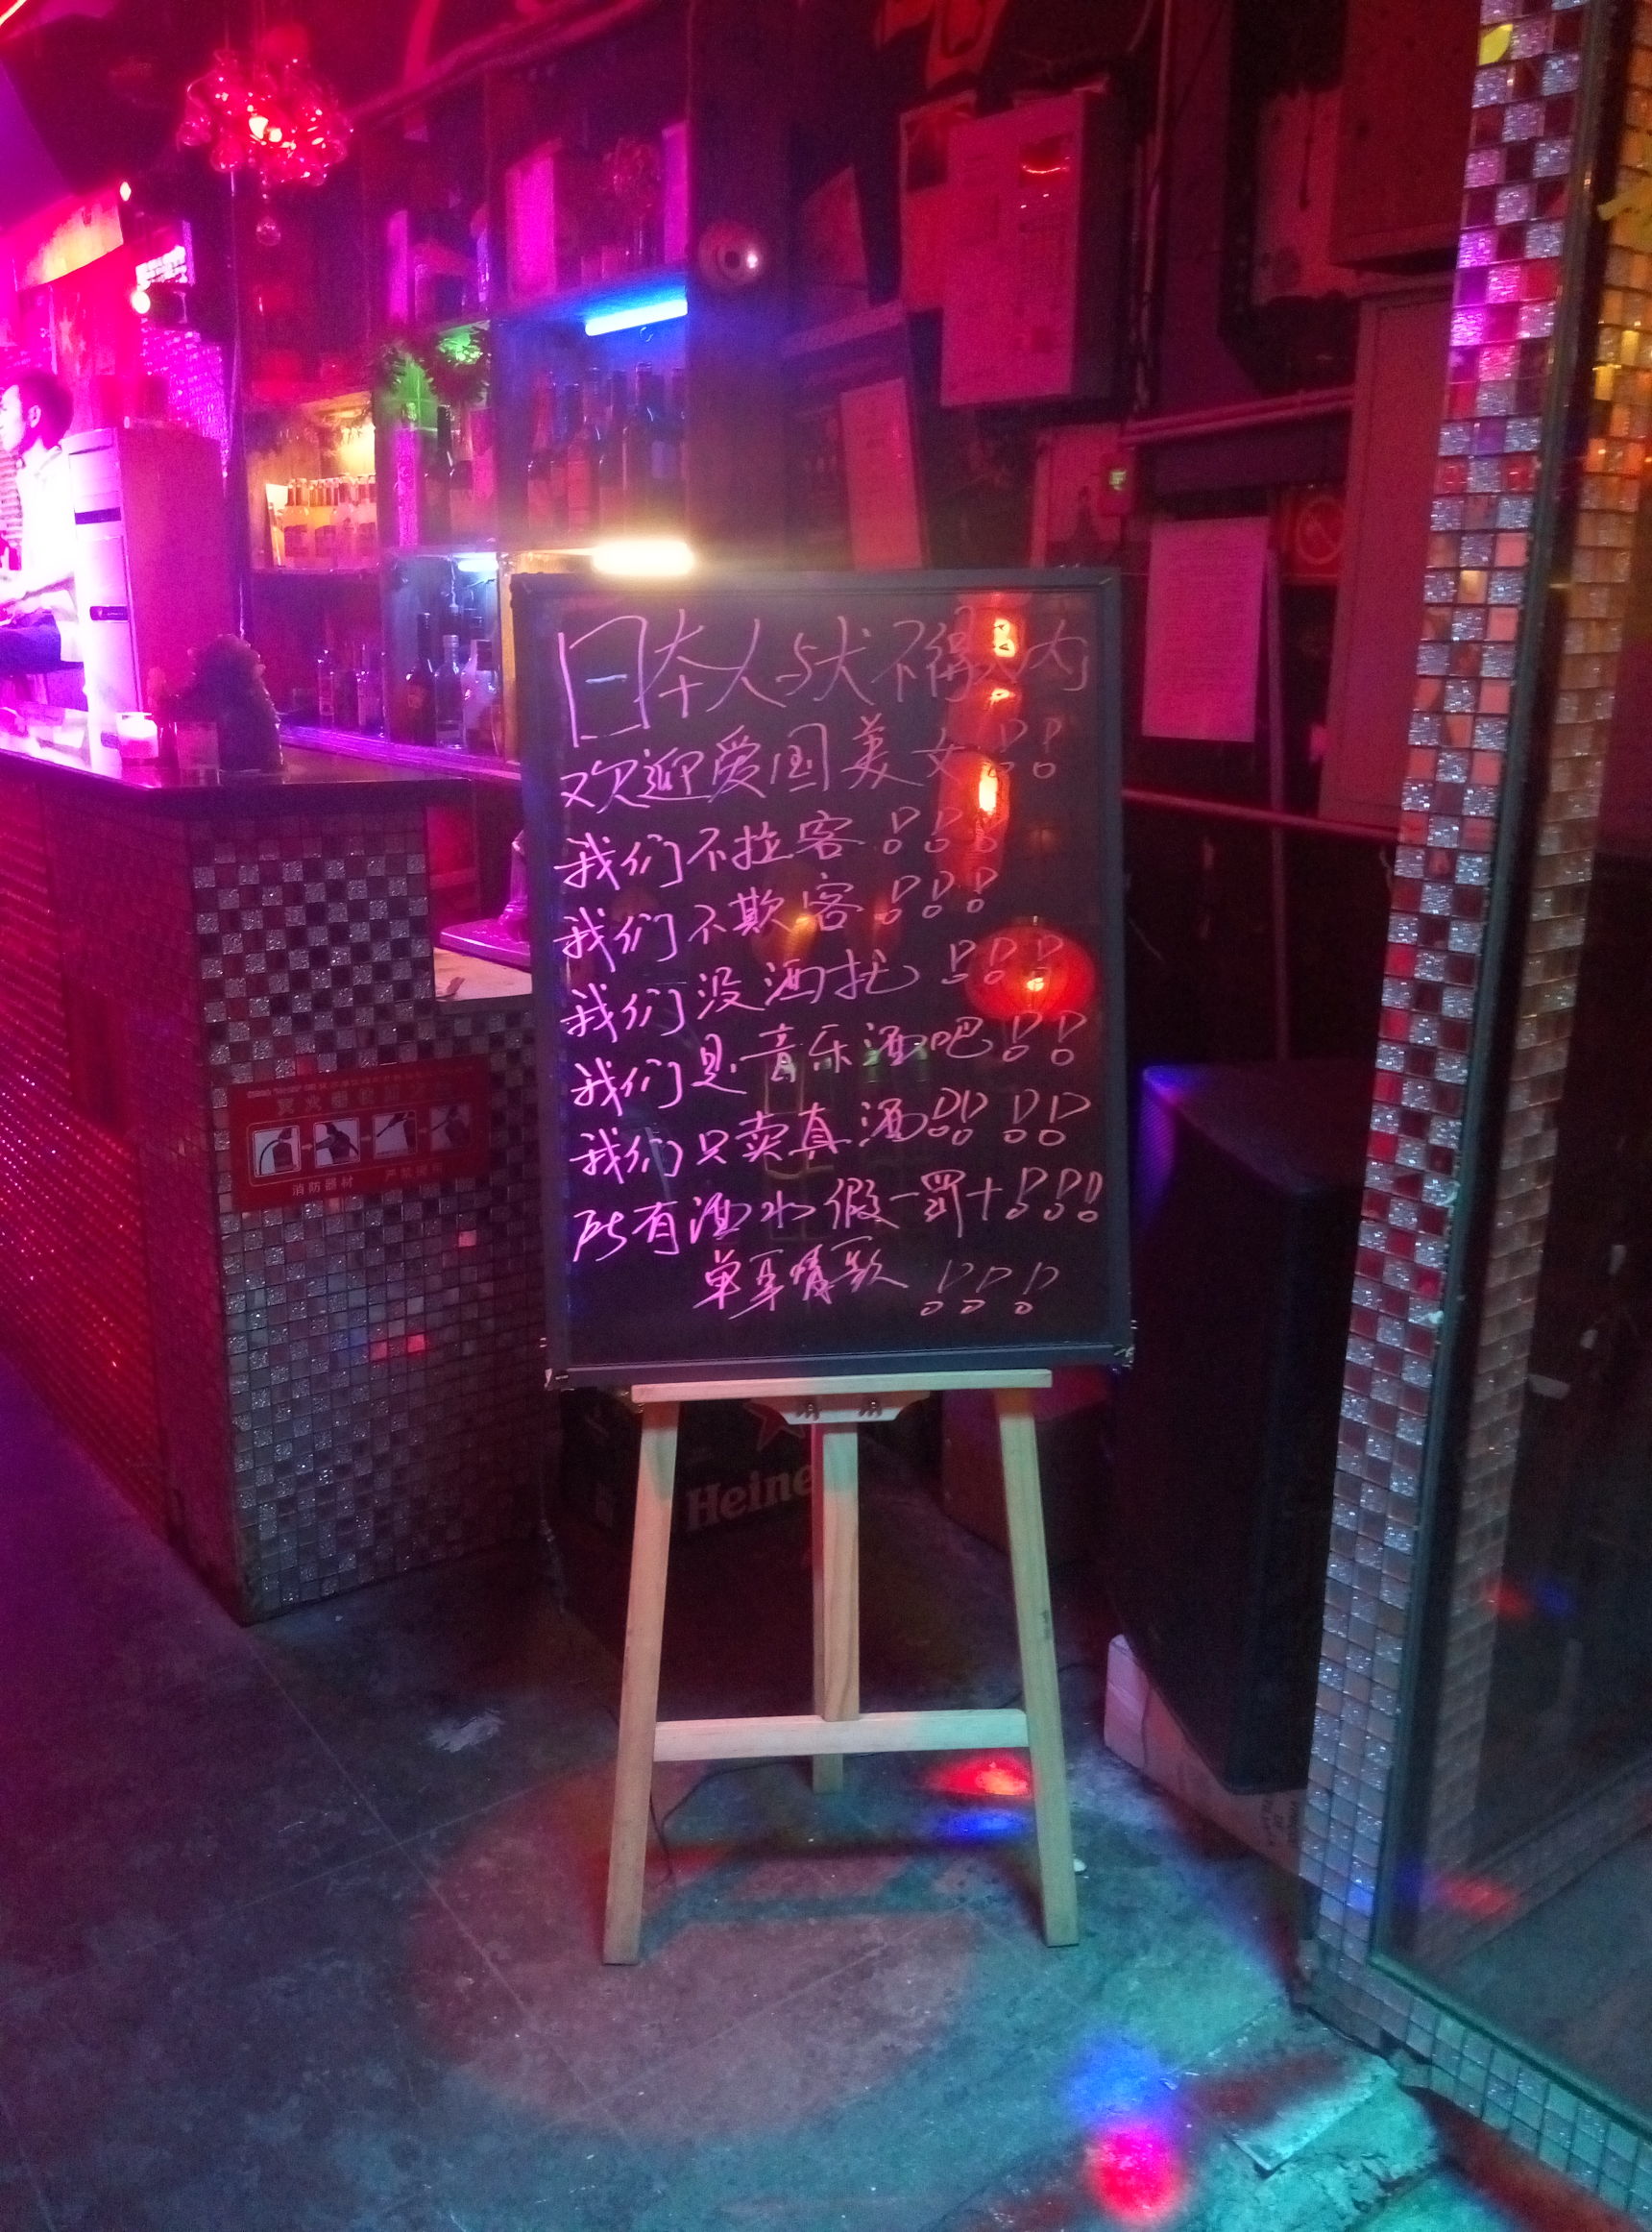 日本人与犬不得入内
欢迎爱国美女!!
我们不拉客!!!
我们不欺客!!!
我们没酒托!!!
我们是音乐酒吧!!
我们只卖真酒!!!!
所有酒水假一罚十!!!!
单身情歌!!!
消防器材 严禁挪用
Heine